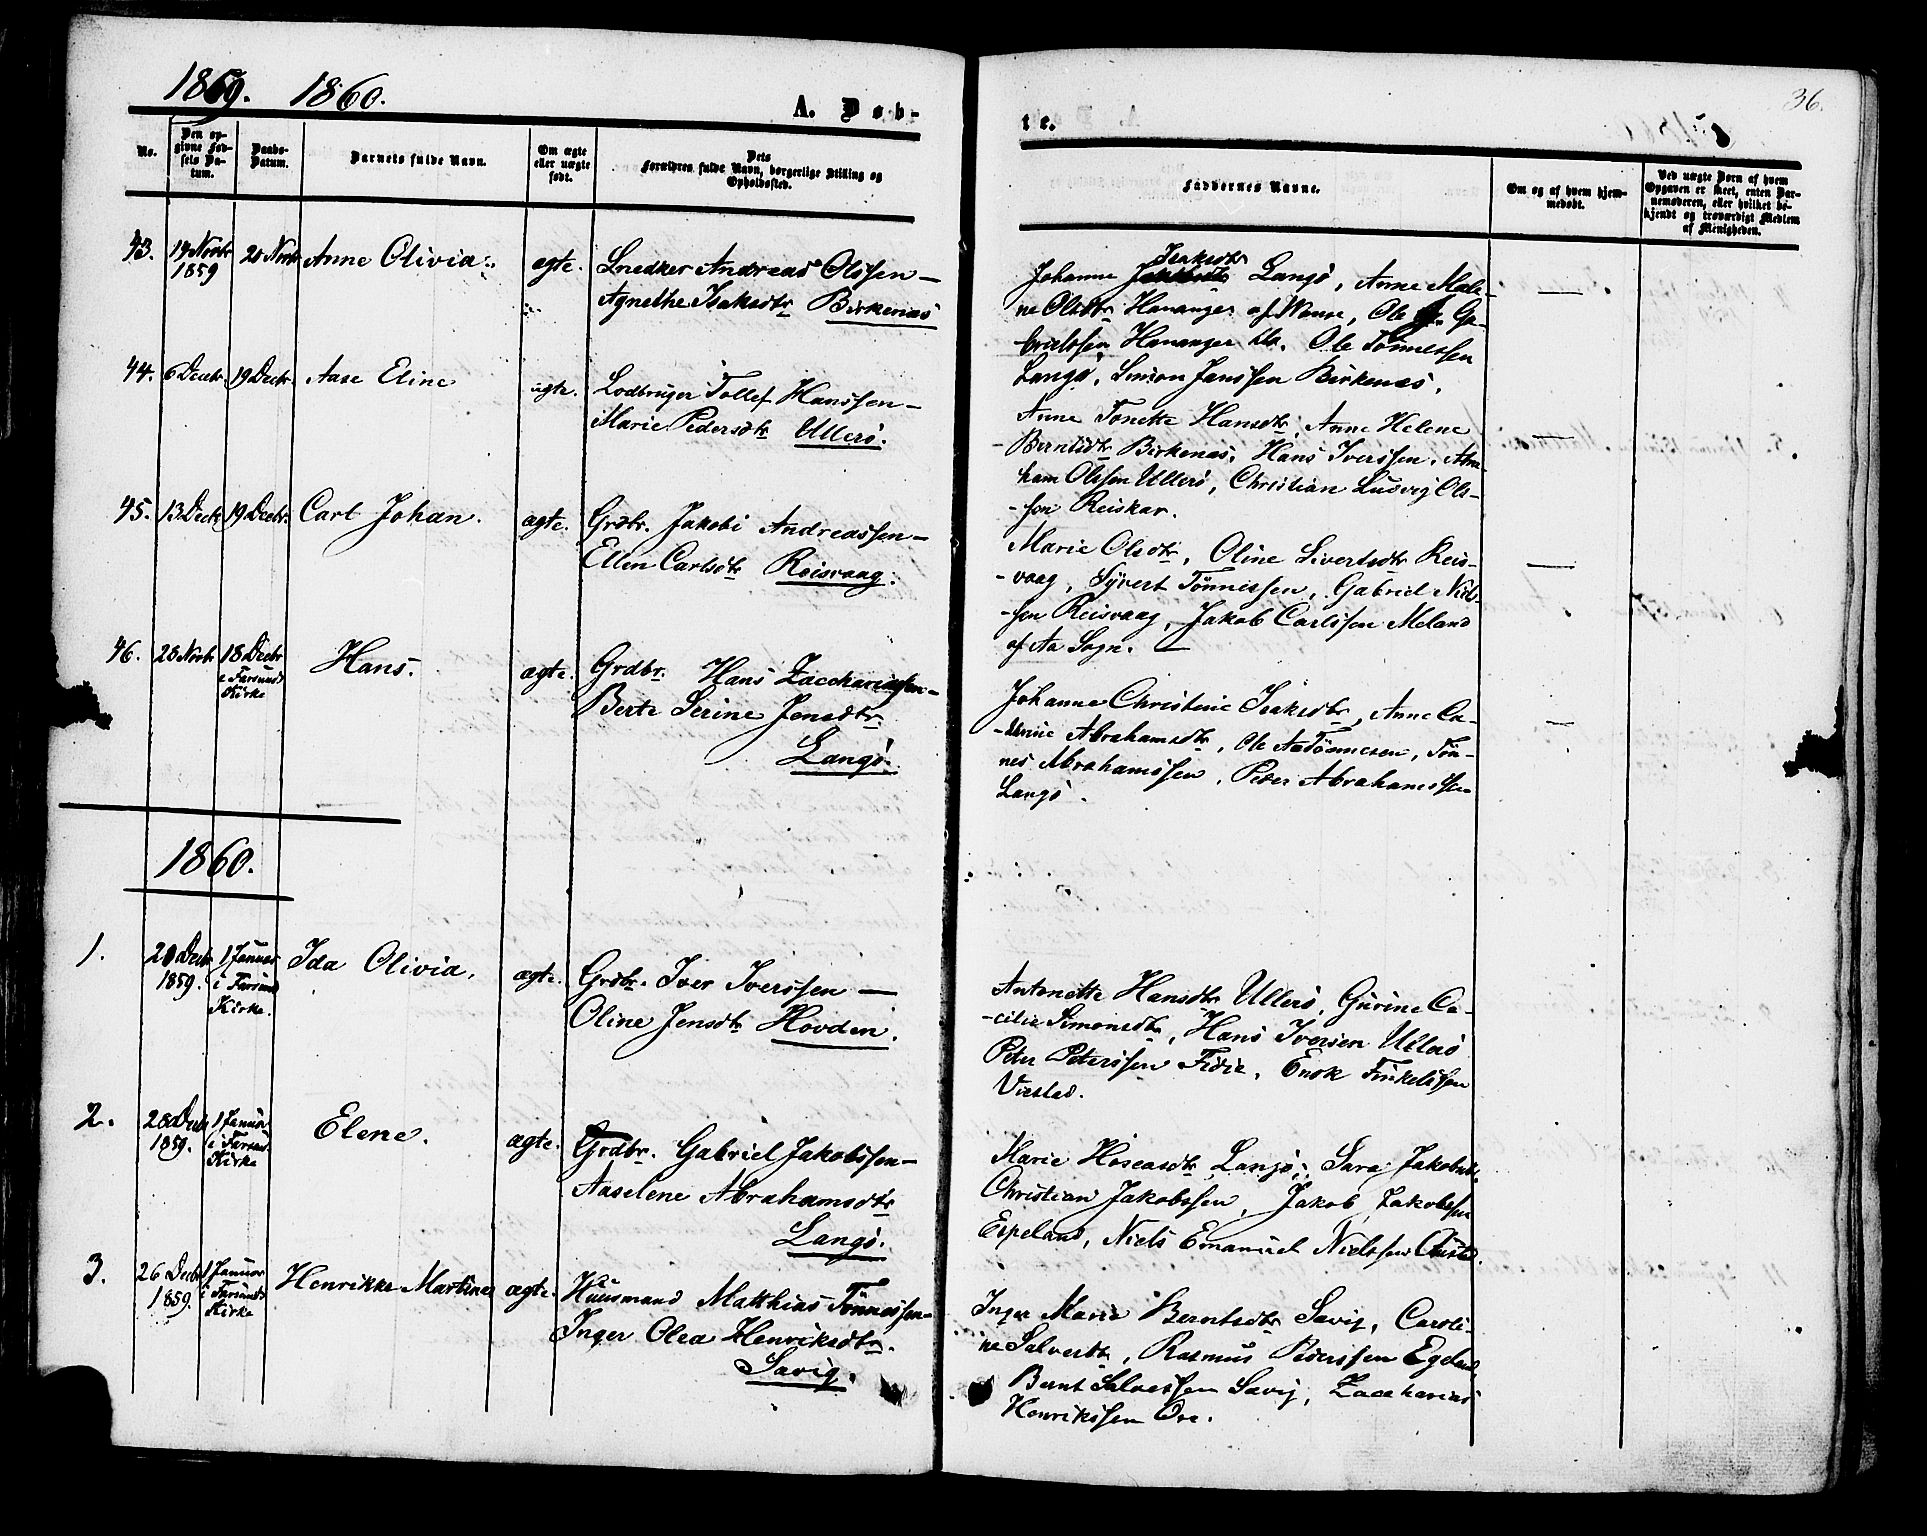 1859. 1860.
A. Døb-
No.
Den op-
givne Fød-
sels Da-
tum.
Daabs-
Datum.
Barnets fulde Navn.
Om ægte
eller uægte
født.
Dets
Forældres fulde Navn, borgerlige Stilling og
Opholdssted.
43.
14 Novbr
1859
20 Novb
Anne Olivia.
ægte.
Snedker Andreas Olssen —
Agnethe Isaksdtr Birkenæs
44.
6 Decbr.
19 Decbr.
Aase Eline
ægte.
Lodbruger Tollef Hanssen —
Marie Pedersdtr Ullerö.
45.
13 Decbr
19 Decbr.
Carl Johan.
ægte.
Grdbr. Jakob Andreassen —
Ellen Carlsdtr Reisvaag.
46.
28 Novbr
18 Decbr
i Farsund
Kirke
Hans.
ægte.
Grdbr. Hans Zacchariassen —
Berte Serine Jensdtr
Langö.
1860.
1.
20 Decbr
1859.
1 Januar
i Farsund
Kirke.
Ida Olivia.
ægte.
Grdbr. Iver Iverssen —
Oline Jensdtr Hovden.
2.
28 Decbr
1859.
1 Januar
i Farsund
Kirke
Elene.
ægte.
Grdbr. Gabriel Jakobssen —
Aaselene Abrahamsdtr
Langö.
3.
26 Decbr
1859.
1 Januar
i Farsund
Kirke
Henrikke Martine
ægte.
Huusmand Matthias Tönnessen —
Inger Olea Henriksdtr.
Savig.
36.
te.
Faddernes Navne.
Om og af hvem hjem-
medøbt.
Ved uægte Børn af hvem
Opgaven er skeet, enten Bar-
nemoderen, eller hvilket be-
kjendt og troværdigt Medlem
af Menigheden.
Isaksdtr
Johanne Langö, Anne Male-
ne Olsdtr Hananger af Vanse, Ole Ga-
brielssen Hananger ibd. Ole Tönnessen
Langö, Simon Janssen Birkenæs.
Anne Tonette Hansdtr, Anne Helene
Berntsdtr Birkenæs, Hans Iverssen, Abra-
ham Olssen Ullerö, Christian Ludvig Ols-
-sen Reiskar.
Marie Olsdtr, Oline Sivertsdtr Reis-
-vaag, Syvert Tönnessen, Gabriel Niels-
-sen Reisvaag, Jakob Carlssen Meland
af Aa Sogn. —
Johanne Christine Isaksdtr, Anne Ca-
-thrine Abrahamsdtr, Ole Tönnesen, Tön-
nes Abrahamssen, Peder Abrahamssen
Langö.
Antonette Hansdtr Ullerö, Gurine Ce-
-cilie Simonsdtr, Hans Iversen Ullerö
Peter Peterssen Fidie, Enok Tinkelssen
Virstad.
Marie Hoseasdtr Langö, Sara Jakobsdtr,
Christian Jakobssen, Jakob Jakobssen
Espeland, Niels Emanuel Nielssen
Inger Marie Berntsdtr Savig, Caroli-
ne Salvesdtr, Rasmus Pederssen Egeland,
Bernt Salvessen Savig, Zaccharias
Henrikssen Ore.